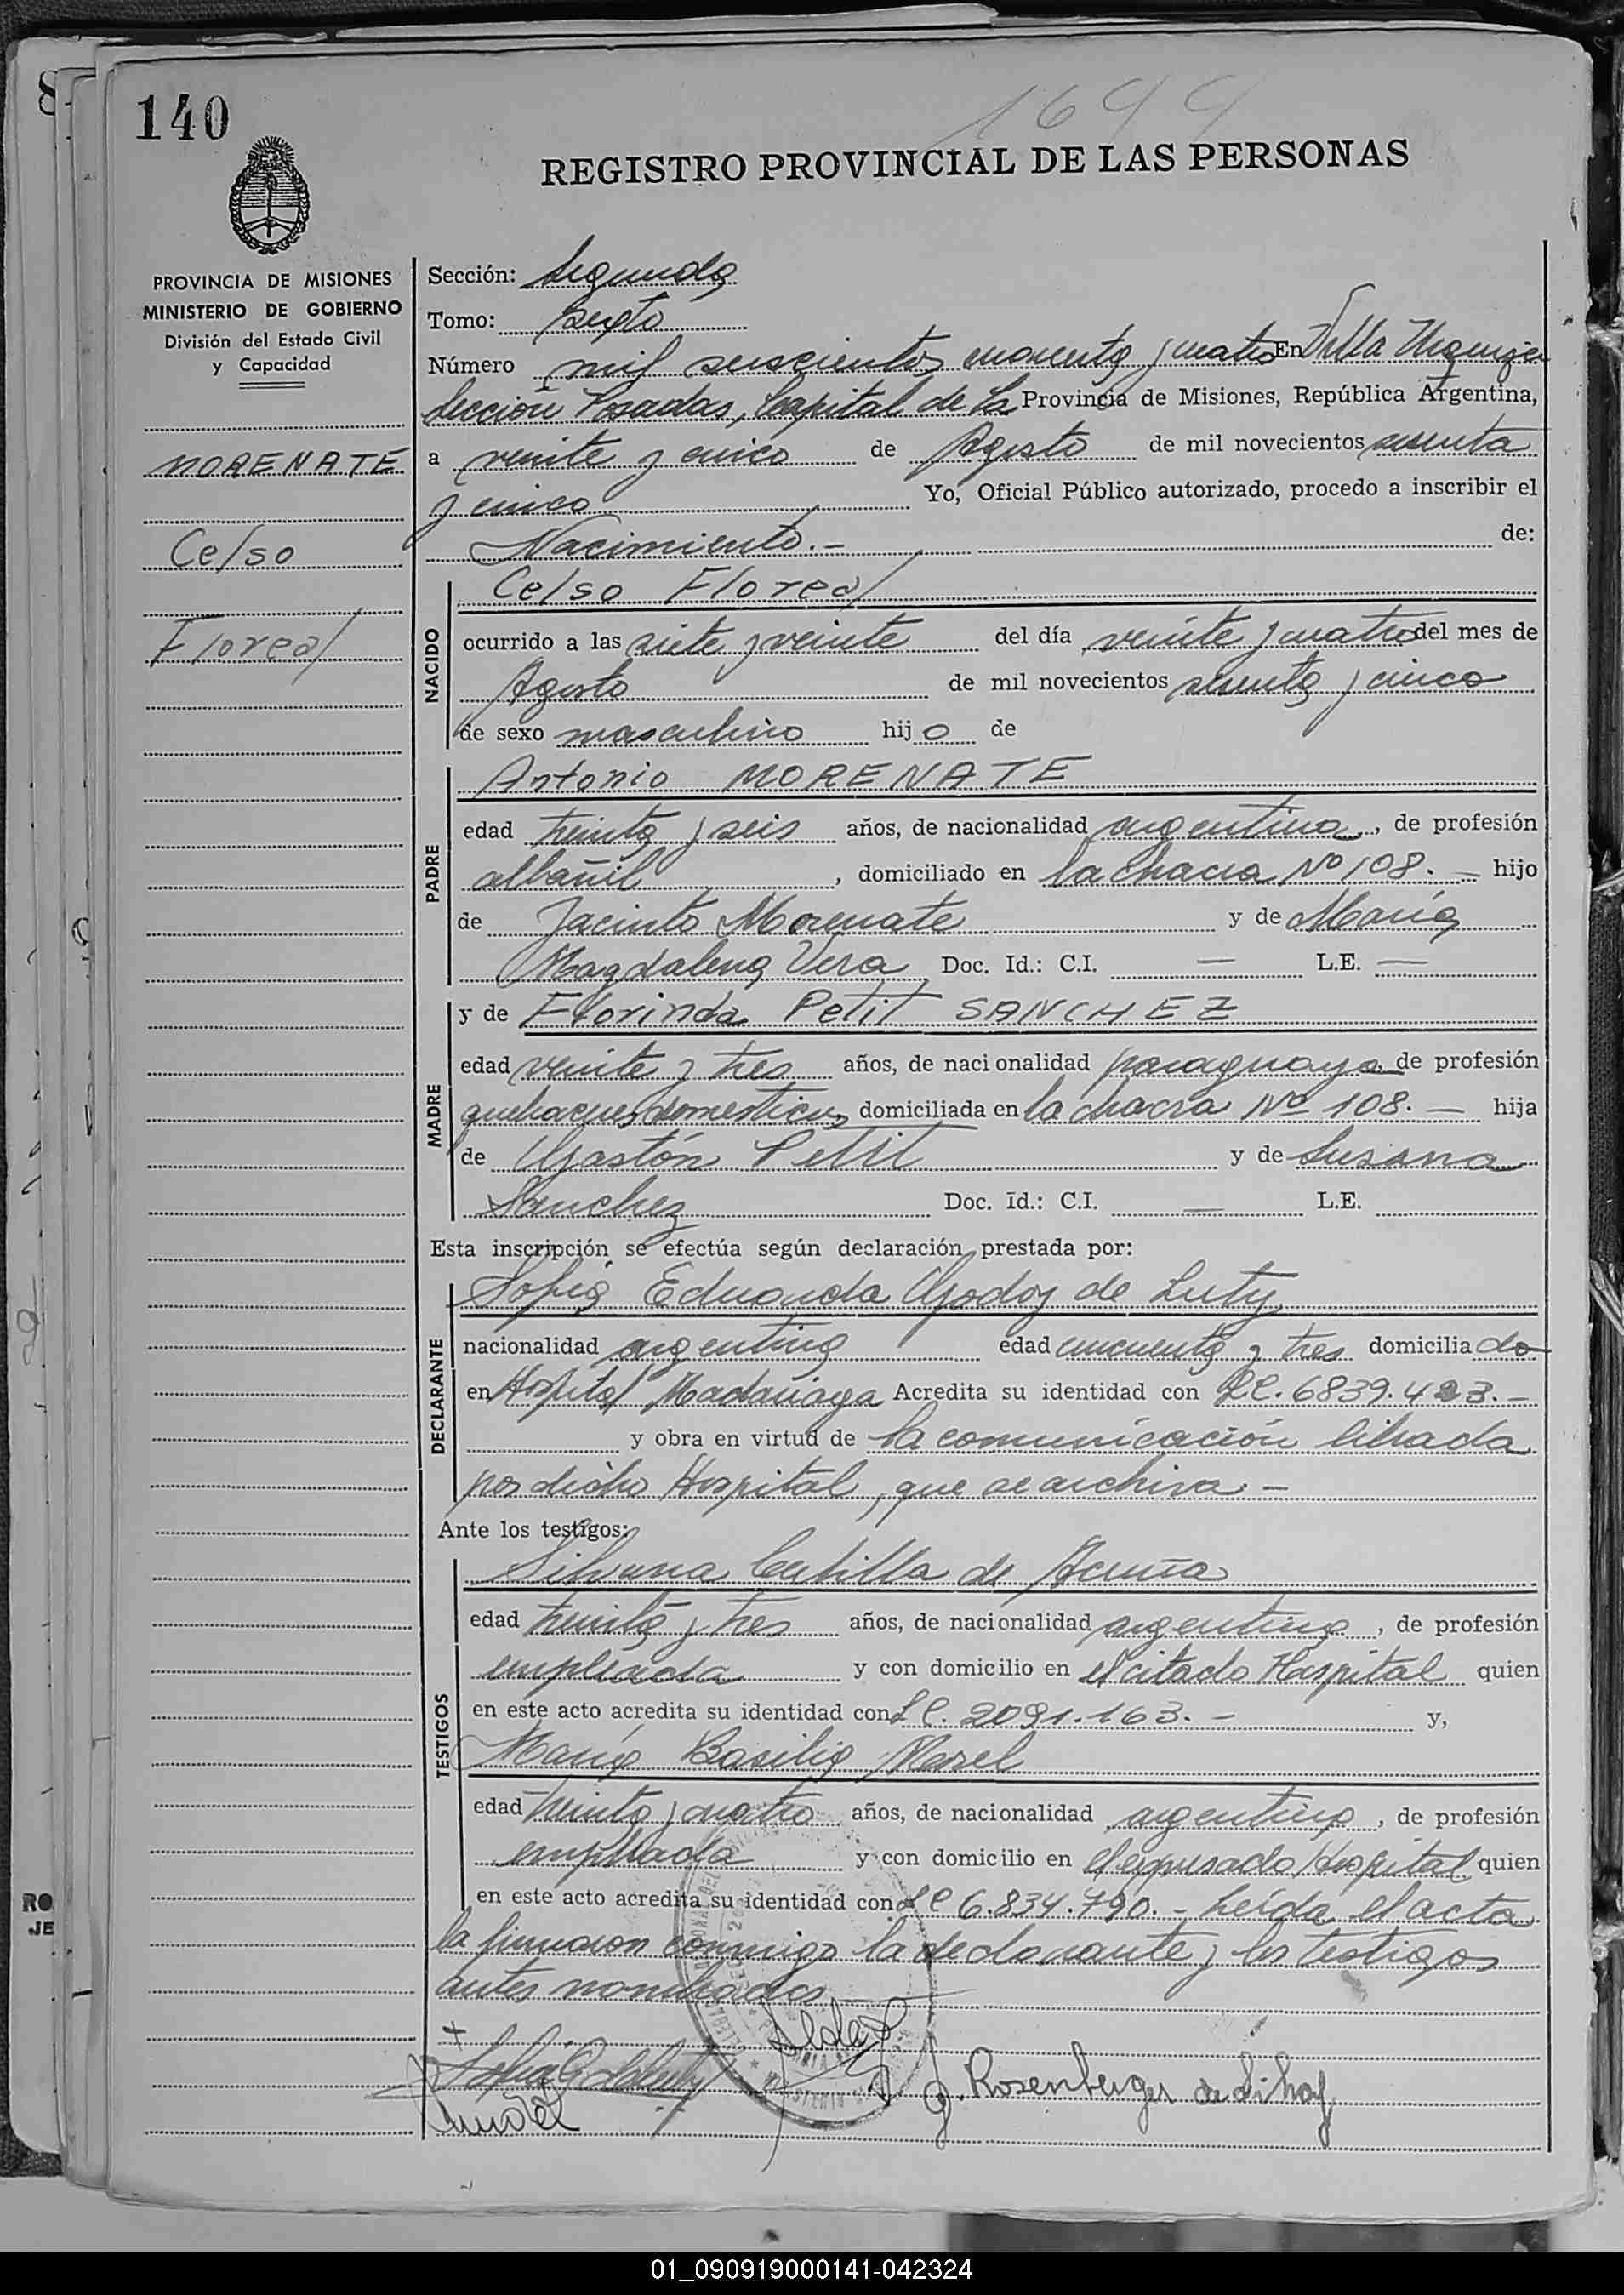 140
1644
REGISTRO PROVINCIAL DE LAS PERSONAS
PROVINCIA DE MISIONES
MINISTERIO DE GOBIERNO
División del Estado Civil
y Capacidad
MORENATE
Celso
Floreal
Sección: Segunda
Tomo: Sexto
Número mil seiscientos cuarenta y cuatro En Villa Urquiza
Sección Posadas, Capital de la Provincia de Misiones, República Argentina,
a veinte y cinco de Agosto de mil novecientos sesenta
y cinco Yo, Oficial Público autorizado, procedo a inscribir el
Nacimiento.- de:
NACIDO
Celso Floreal
ocurrido a las siete y veinte del día veinte y cuatro del mes de
Agosto de mil novecientos sesenta y cinco
de sexo masculino hijo de
PADRE
Antonio MORENATE
edad treinta y seis años, de nacionalidad argentina, de profesión
albañil, domiciliado en la chacra Nº 108. - hijo
de Jacinto Morenate y de María
Magdalena Vera Doc. Id.: C.I. — L.E. —
MADRE
y de Florinda Petit SANCHEZ
edad veinte y tres años, de nacionalidad paraguaya de profesión
quehaceres domesticos domiciliada en la chacra Nº 108. - hija
de Gastón Petit y de Susana
Sanchez Doc. Id.: C.I. — L.E.
Esta inscripción se efectúa según declaración prestada por:
DECLARANTE
Sofia Eduarda Godoy de Luty
nacionalidad argentina edad cincuenta y tres domiciliada
en Hospital Madariaga Acredita su identidad con LC. 6839.423.-
y obra en virtud de la comunicación librada
por dicho Hospital, que se archiva -
Ante los testigos:
TESTIGOS
Silvana de Acuña
edad treinta y tres años, de nacionalidad argentina, de profesión
empleada y con domicilio en el citado Hospital quien
en este acto acredita su identidad con LC. 2091.163. - y,
María Basilia
edad treinta y cuatro años, de nacionalidad argentina, de profesión
empleada y con domicilio en el expresado Hospital quien
en este acto acredita su identidad con LC 6.834.790. - Leída el acta
la firmaron conmigo la declarante y los testigos
antes nombrados
J. Rosenberger de
RO
JE
01_090919000141-042324